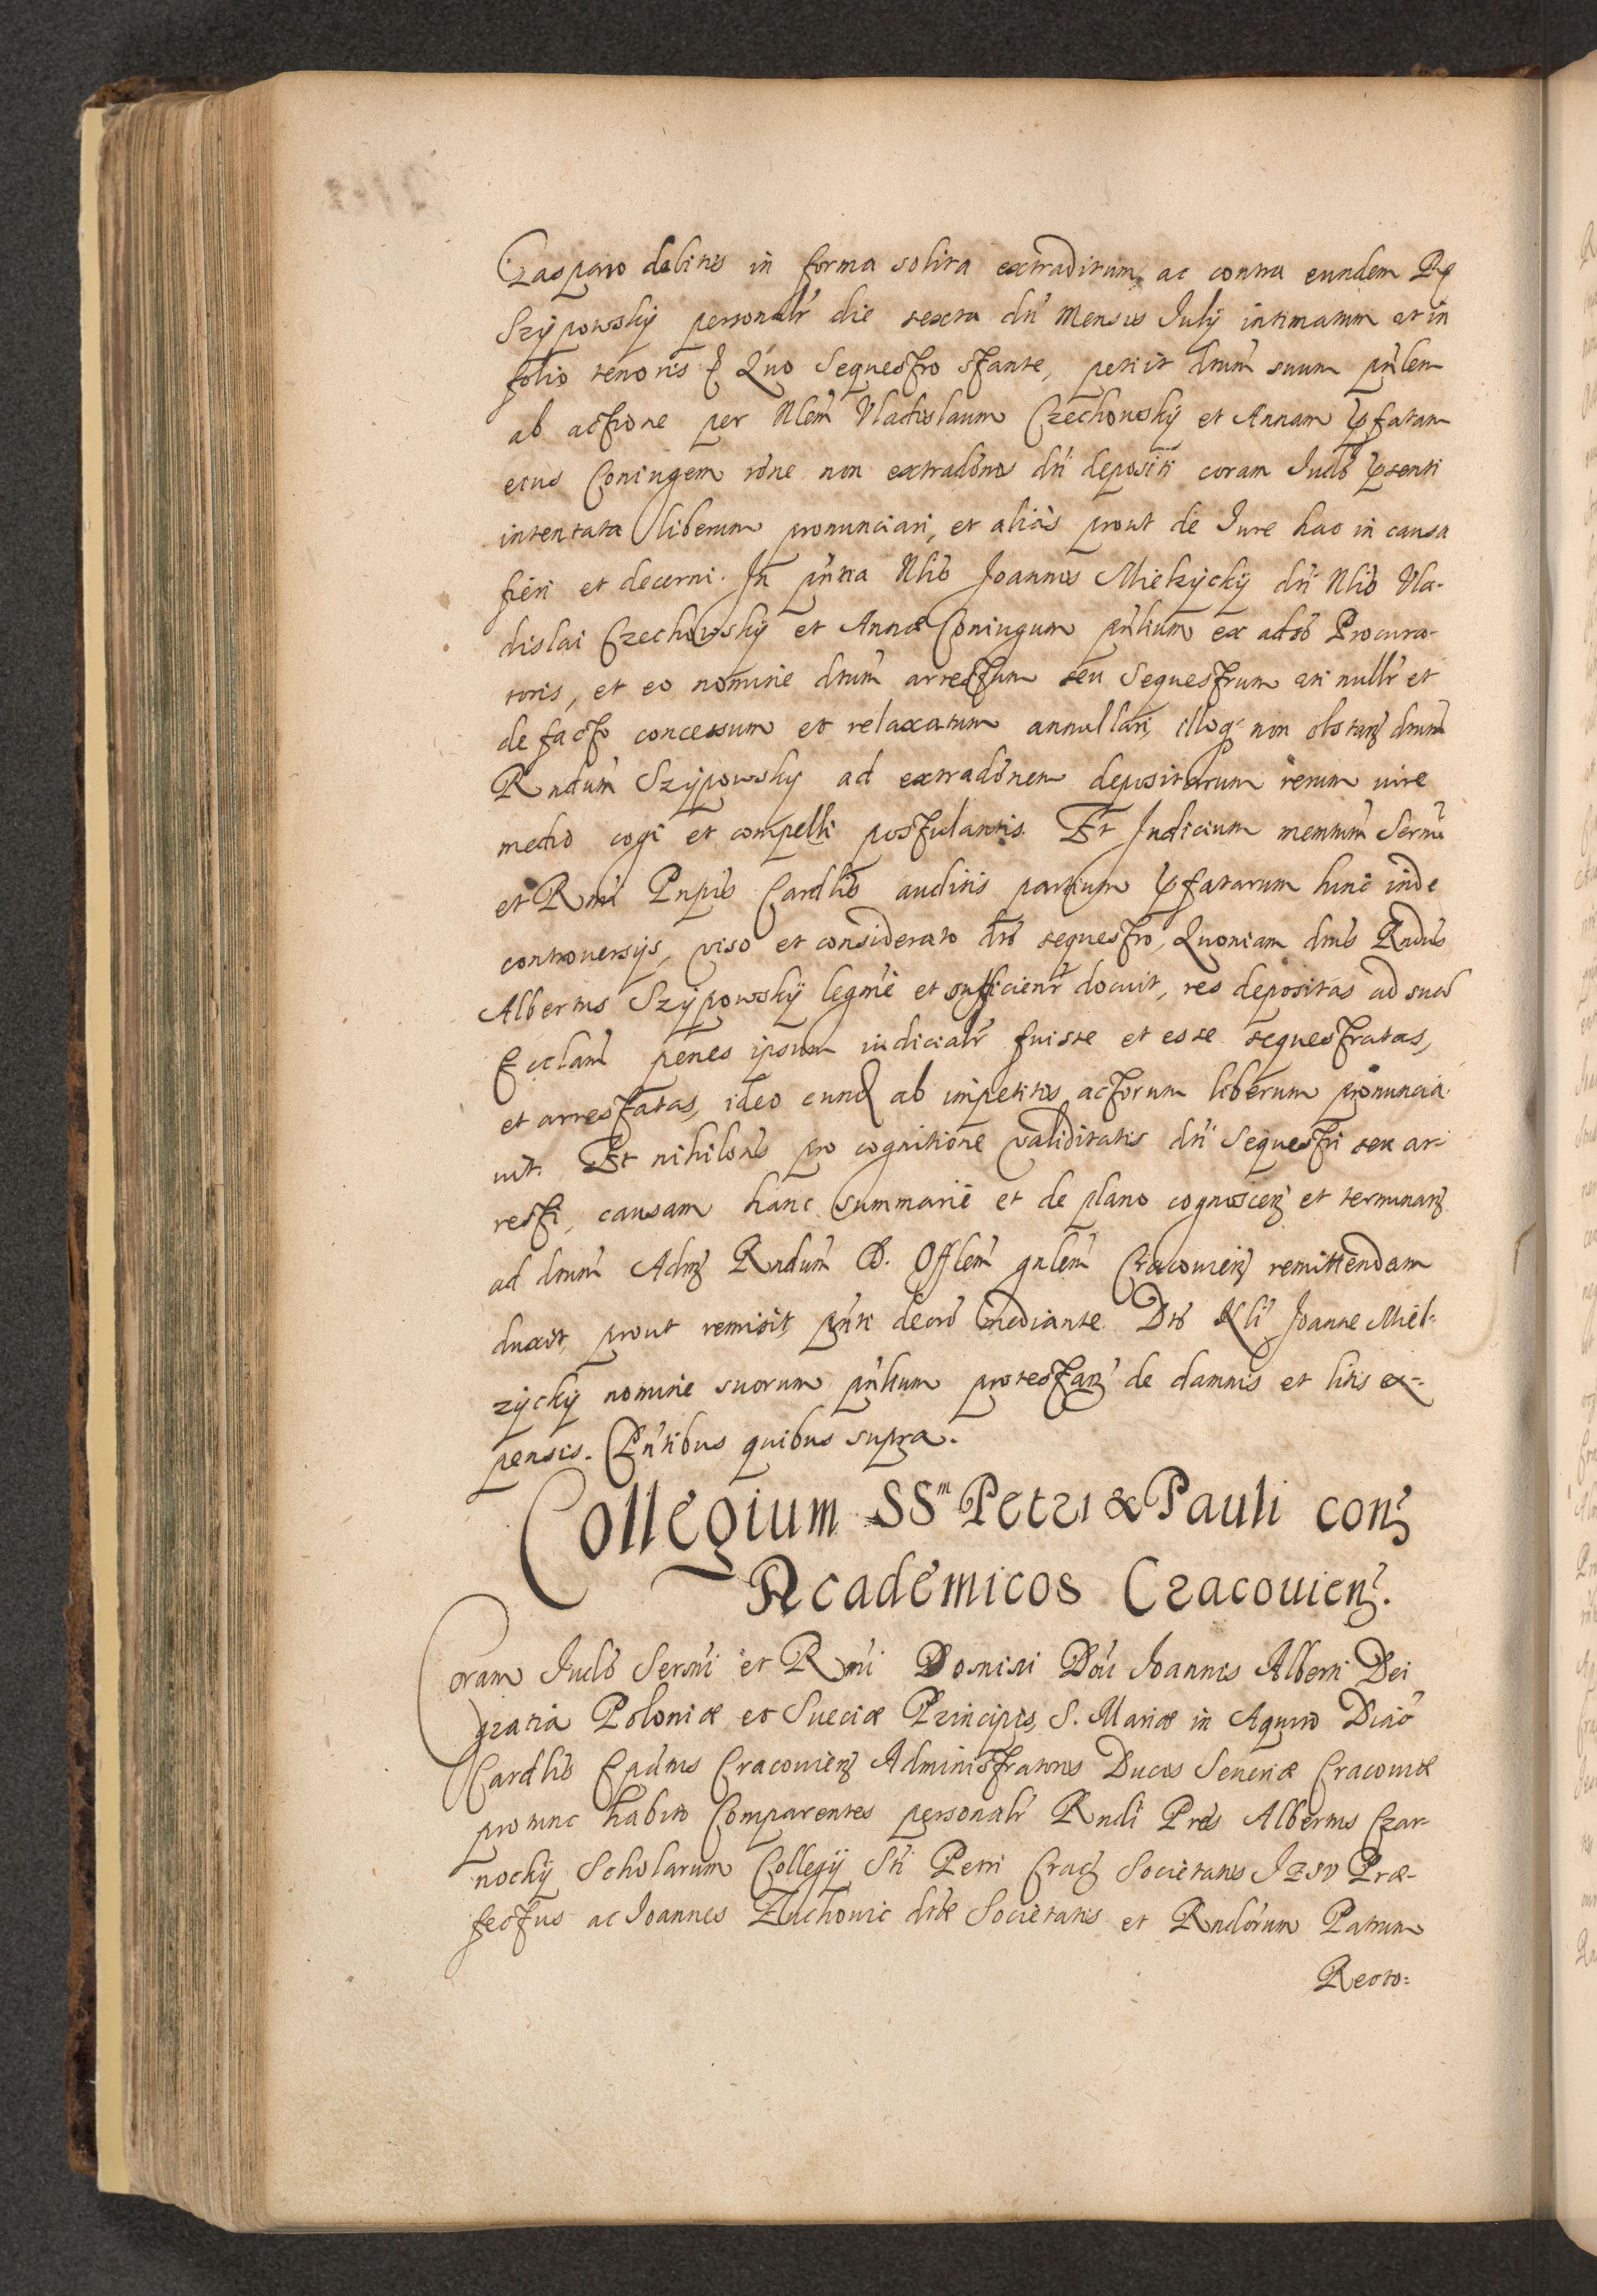 Gasparo debitis in forma solita extraditum, ac contra eundem
Szÿpowskÿ personalr̃ die sexta dti Mensis Julÿ intimatum et in
folio tenoris Quo Sequestro stante, petiit dnum suum pñlem
ab actione per Nlem Vladislaum Czechowskÿ et Annam pfatam
eius Coniugem rõne non extradõnis dti depositi coram Judõ psenti
intentata liberum pronunciari, et aliàs prout de Jure hac in causa
fieri et decerni. In pñtia Nlis Joannis Mielzÿckÿ dti Nlis Vla-
dislai Czechowskÿ et Annæ Coniugum pñlium ex adso Procura-
toris, et eo nomine dtum arrestum seu Sequestrum uti nullr̃ et
de facto concessum et relaxatum annullari, illoq non obstanz dnum
Rndum Szÿpowskÿ ad extradõnem depositarum rerum iure
medio cogi et compelli postulantis. Et Judicium mentum Sermi
et Rmi Pnpis Cardlis auditis partium pfatarum hinc inde
controversÿs, viso et considerato dto sequestro, Quoniam dnus Rndus
Albertus Szÿpowskÿ legme et sufficientr docuit, res depositas ad suã
Ecclam penes ipsum iudicialr̃ fuisse et esse sequestratas,
et arrestatas, ideo eund ab impetitis actorum liberum pronuncia-
vit. Et nihilons pro cognitione validitatis dti Sequestri seu ar-
resti, causam hanc summariè et de plano cognoscenz et terminanz
ad dnum Admz Rndum D. Offlem gnlem Cracovienz remittendam
duxit, prout remisit pñti decro mediante. Dto Nli Joanne Miel-
zÿckÿ nomine suorum pñlium protestanz de damnis et litis ex-
pensis. Pñtibus quibus supra.
Collegium SSm Petri & Pauli conz
Academicos Cracovienz.
Coram Judõ Sermi et Rmi Domini Dñi Joannis Alberti Dei
gratia Poloniæ et Sueciæ Principis, S. Mariæ in Aquiro Diaõ
Cardlis Epatus Cracovienz Administratoris Ducis Severiæ Cracoviæ
pro tunc habito Comparentes personalr̃ Rndi Pres Albertus Czar-
nockÿ Scholarum Collegÿ Sti Petri Cracz Societatis Jesv Præ-
fectus ac Joannes Zuchowic dtæ Societatis et Rndorum Patrum
Recto=